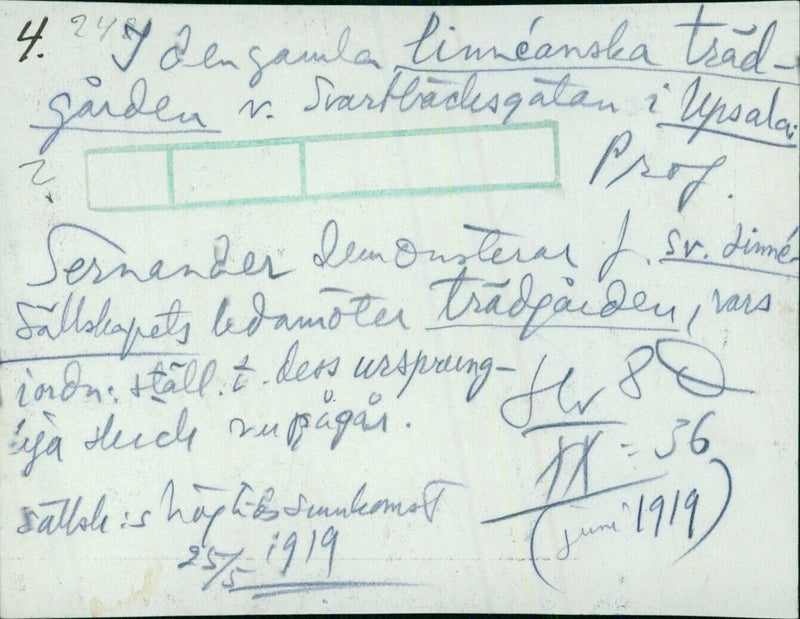 4. 24
I den gamla linnéanska träd-
gården v. Svartbäcksgatan i Upsala.
2. Prof.
Sernander demonsterar f. Sv. Linné-
Sällskapets ledamöter trädgården, vars
iordn:ställ. t. dess ursprung-
liga skick nu pågår.
Hv 8
II = 36
(juni 1919)
Sällsk:s högtidssamkomst
25/5 1919